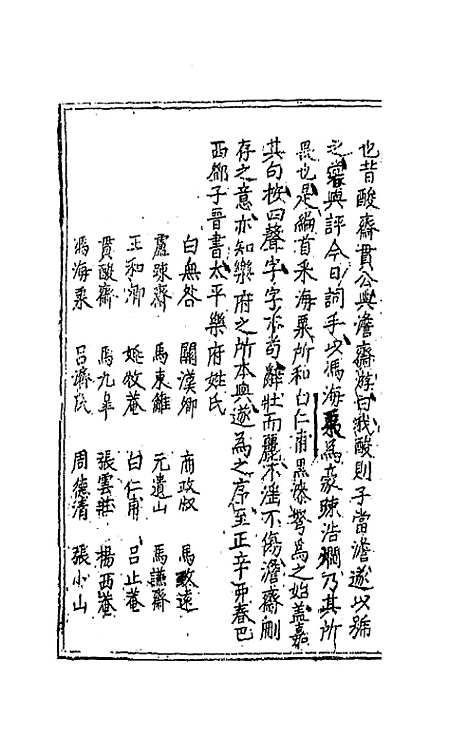 也昔酸齋貫公與澹齋游曰我酸則子當澹遂以號
之嘗與評今日詞手以馮海粟為豪辣浩瀾乃其所
畏也是編首采海粟所和白仁甫黑漆弩為之始蓋嘉
其句按四聲字字不苟辭壯而麗不淫不傷澹齋刪
存之意亦知樂府之所本與遂為之序至正辛卯春巴
西鄧子晉書太平樂府姓氏
白無咎 關漢卿 商政叔 馬致遠
盧疎齋 馬東籬 元遺山 馬謙齋
王和卿 姚牧菴 白仁甫 呂止菴
貫酸齋 馬九皐 張雲莊 楊西菴
馮海粟 呂濟民 周德清 張小山